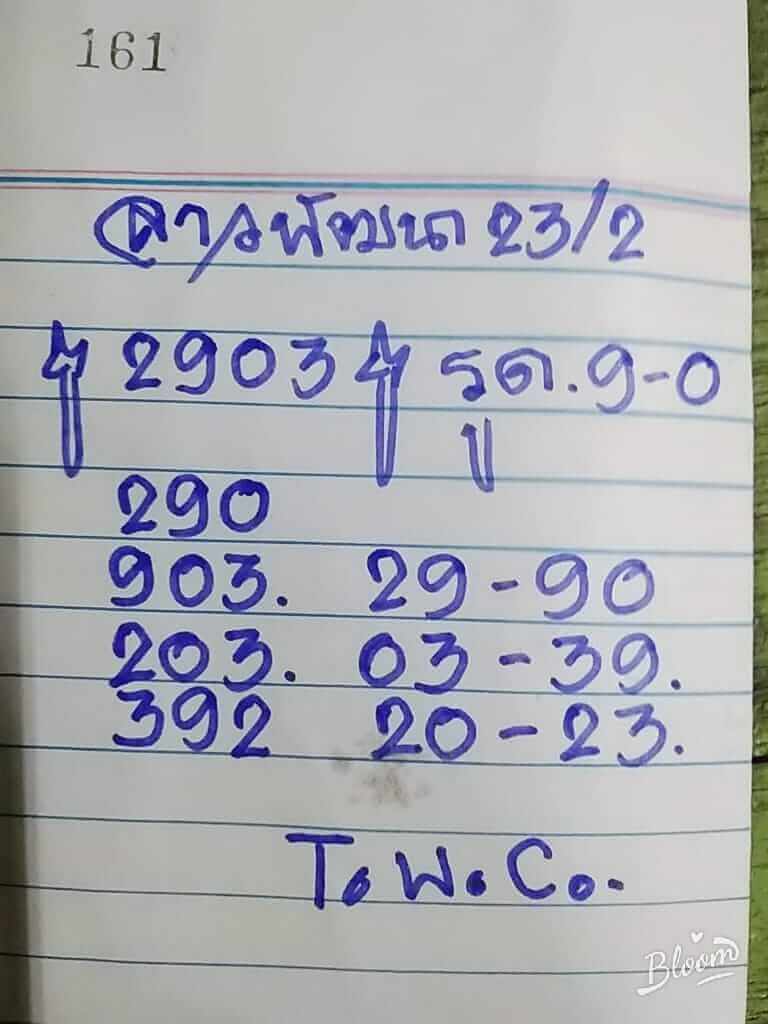 161
ลาวพัฒนา 23/2
2903 รูด. 9-0
290
903. 29-90
203. 03-39.
392 20-23.
T.W.C..
Bloom